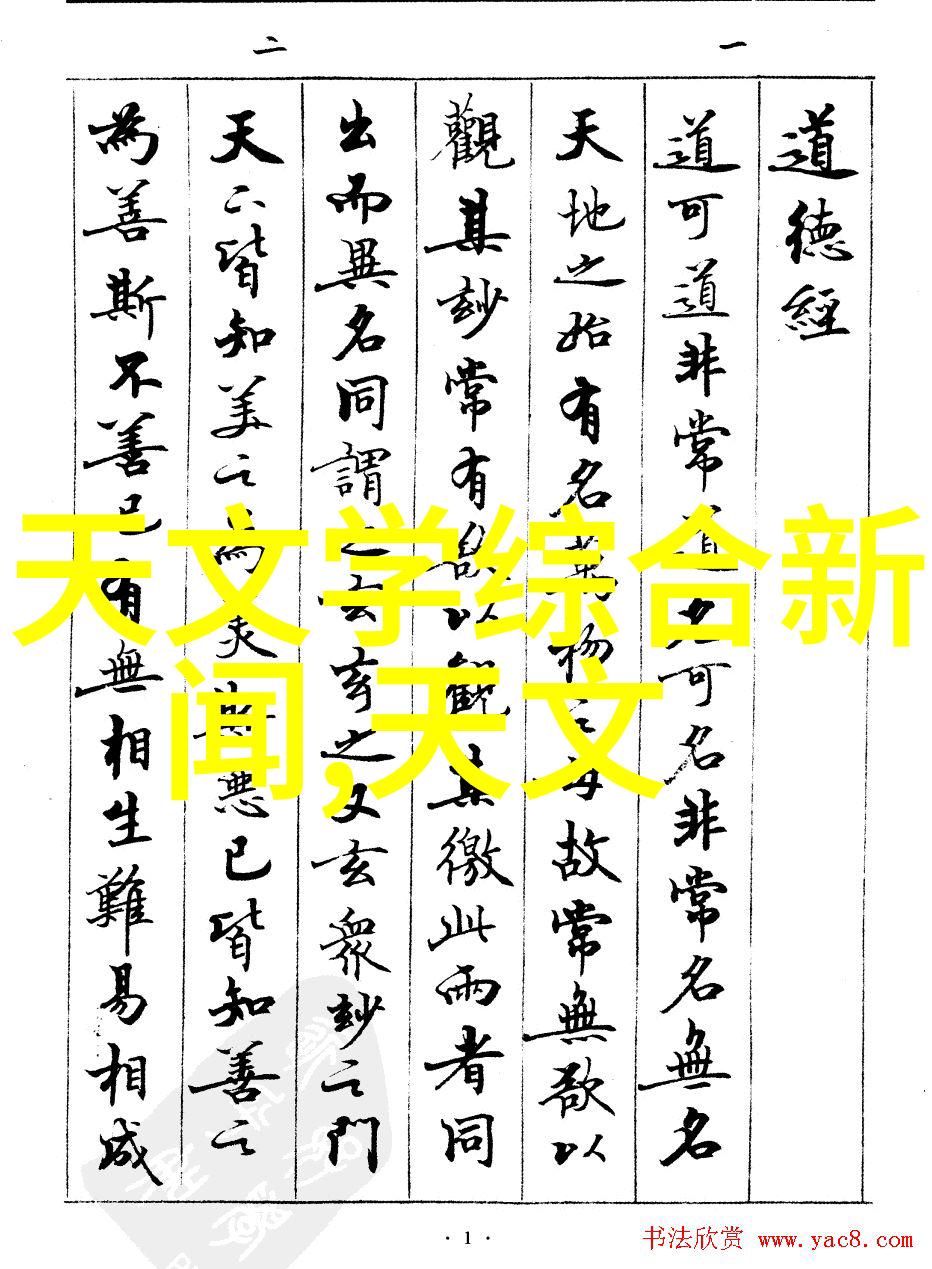 一
二
道德經
道可道非常道名可名非常名無名
天地之始有名萬物之母故常無欲以
觀其玅常有欲以觀其徼此兩者同
出而異名同謂之玄玄之又玄衆玅之門
天下皆知美之為美斯惡已皆知善之
為善斯不善已有無相生難易相成
天文学综合新
闻,天文
· 1 ·
书法欣赏 www.yac8.com